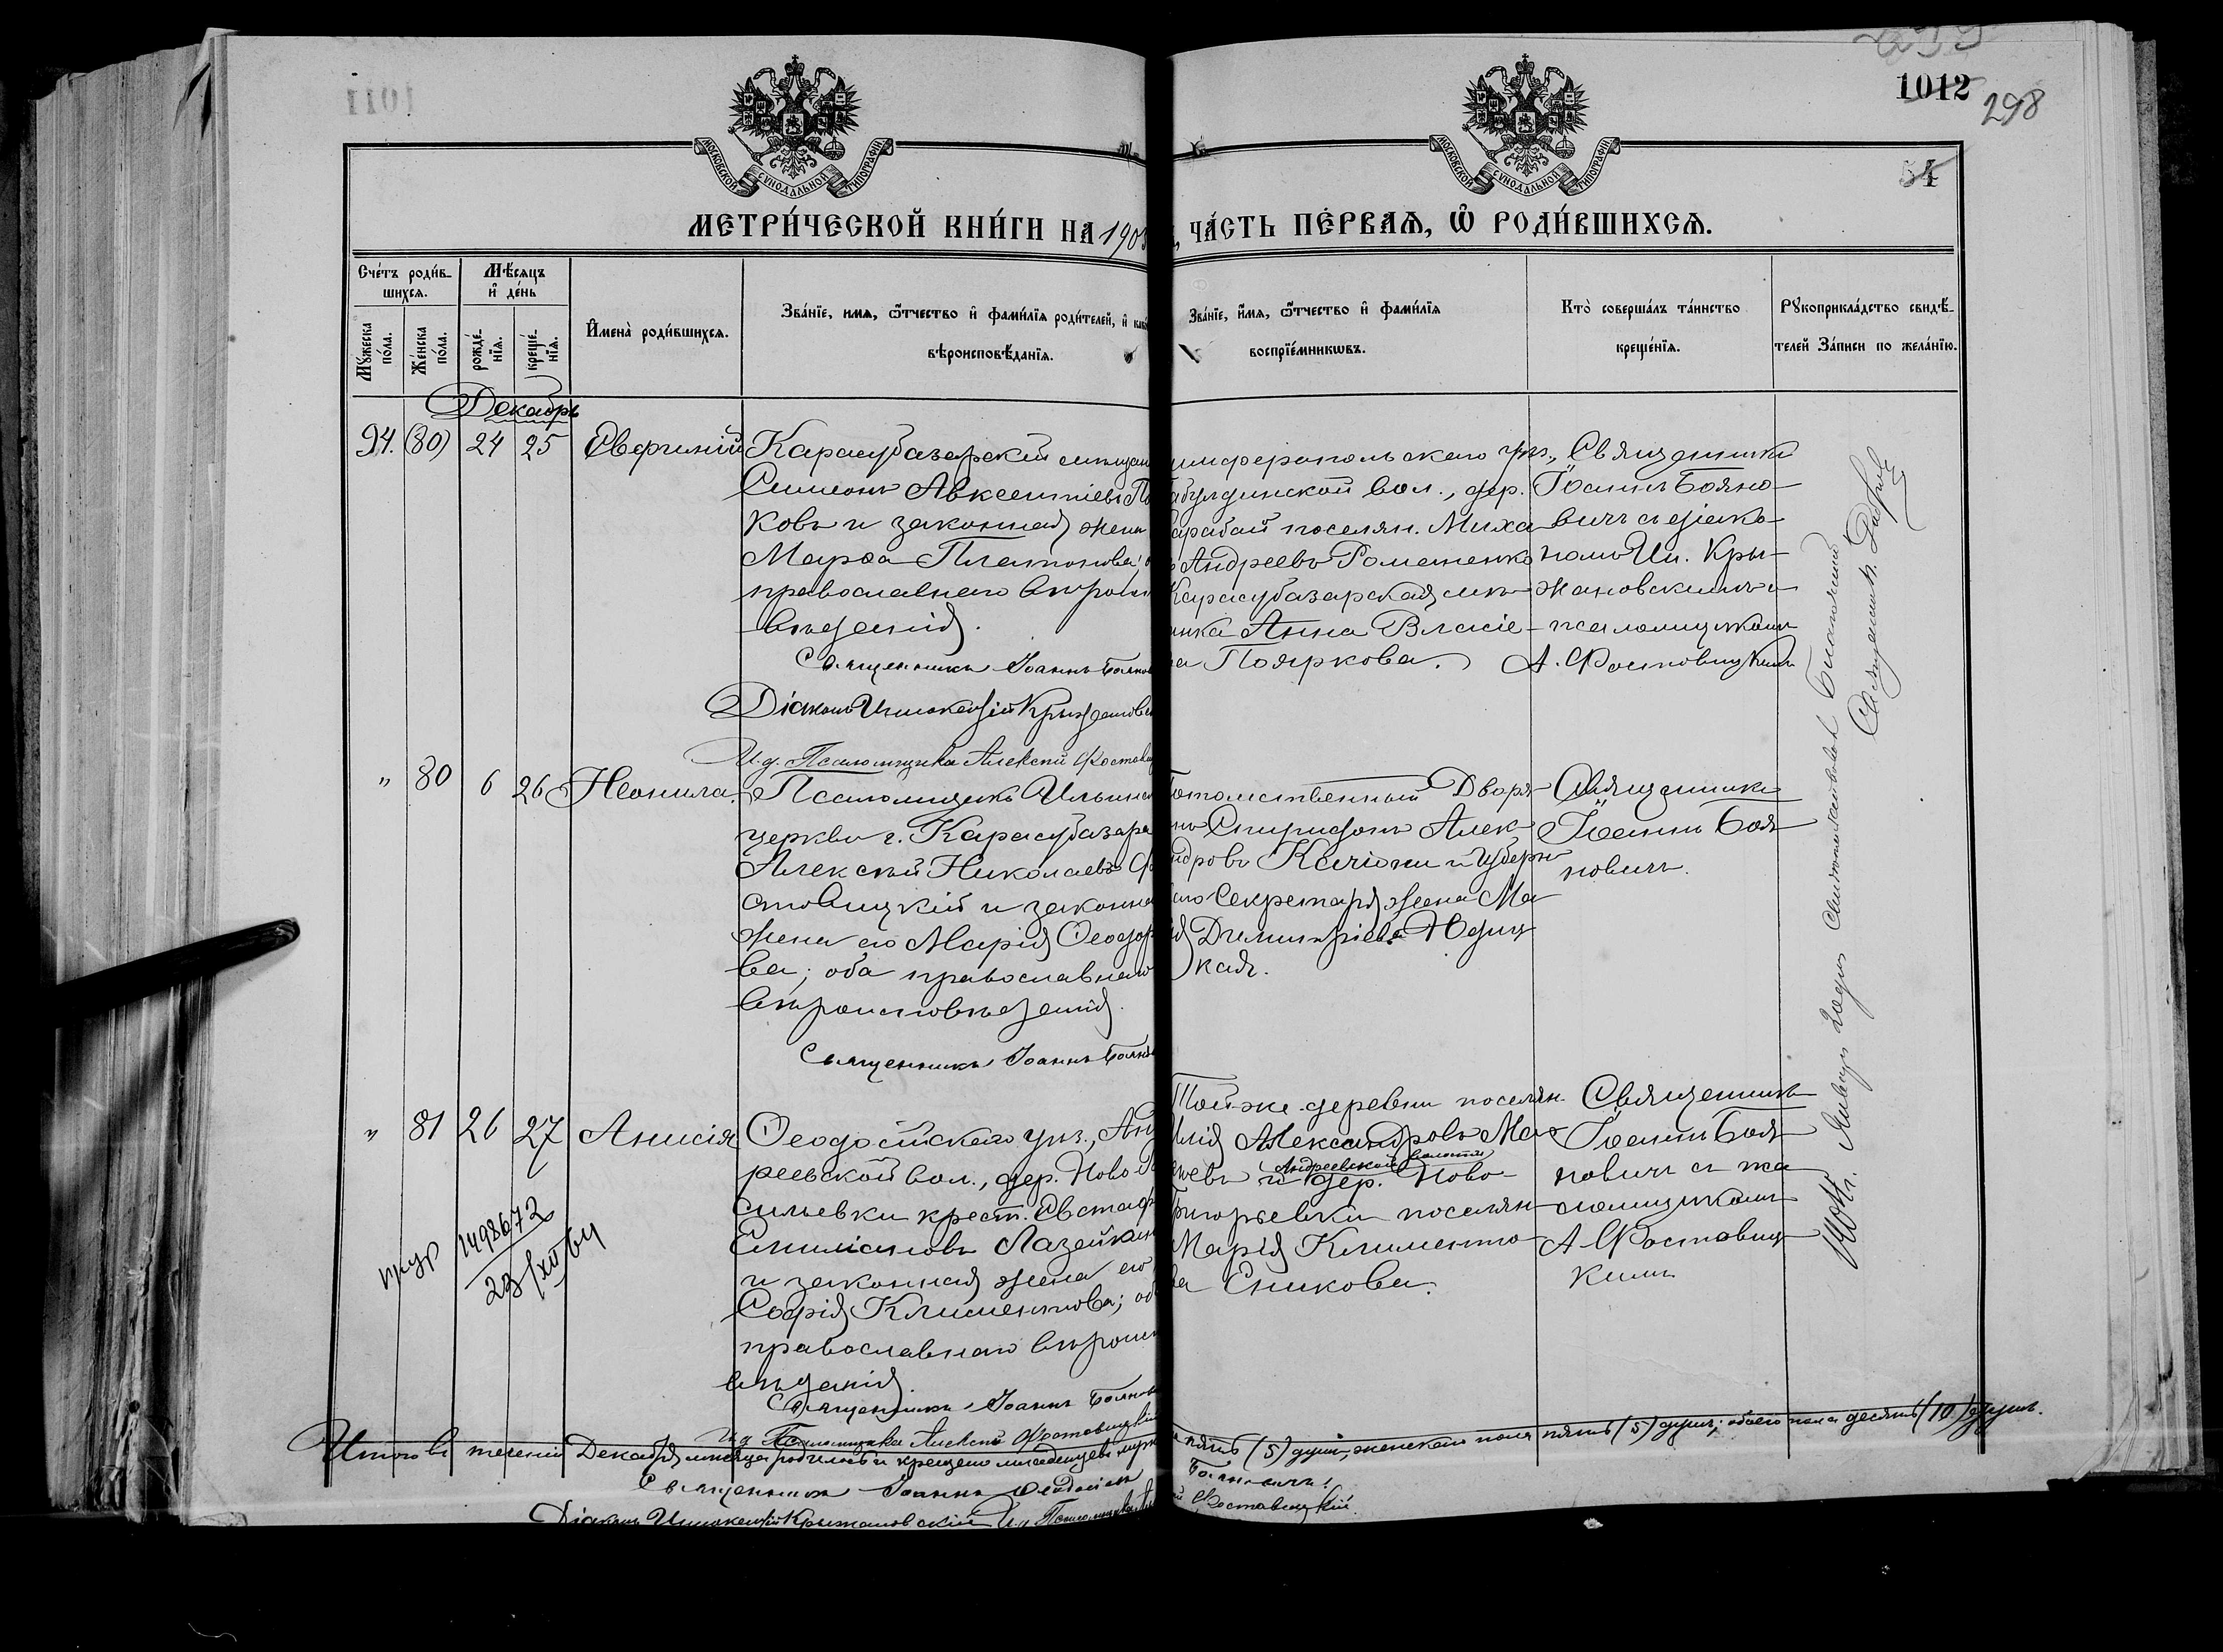 1011
1012
298
54
МОСКОВСКОЙ СѴНОДАЛЬНОЙ ТИПОГРАФІИ
МОСКОВСКОЙ СѴНОДАЛЬНОЙ ТИПОГРАФІИ
МЕТРИ́ЧЕСКОЙ КНИ́ГИ НА 190
ЧА́СТЬ ПЕ́РВАѦ, Ѿ РОДИ́ВШИХСѦ.
Сче́тъ роди́в-
шихсѧ.
Мѣ́сѧцъ
и҆ де́нь
Мꙋ́жеска по́ла.
Же́нска по́ла.
рожде́-
нїѧ.
креще́-
нїѧ.
И҆мена̀ роди́вшихсѧ.
Зва́нїе, имѧ, ѻ҆́тчество и҆ фами́лїѧ роди́телей, и҆
вѣроисповѣ́данїѧ.
Зва́нїе, и҆́мѧ, ѻ҆́тчество и҆ фами́лїѧ
воспрїе́мникѡвъ.
Кто̀ соверша́лъ та́инство
креще́нїѧ.
Рꙋкоприкла́дство свидѣ́-
телей за́писи по жела́нїю.
Декабрь
94. (80) 24 25 Евгеній
Карасубазарскій мѣщан
Симеонъ Авксентіевъ По
ковъ и законная жена
Марѳа Платонова;
православнаго вѣроис
вѣданія.
Священникъ Іоаннъ Боянов
Діаконъ Иннокентій Крыжановс
И.д. Псаломщика Алексѣй Фостовиц
имферопольскаго уѣз.,
абулдинской вол., дер.
арабай поселян. Миха
Андреевъ Романенко
Карасубазарская мѣ-
нка Анна Власіе-
ва Пояркова.
Священникъ
Іоаннъ Бояно-
вичъ съ діако-
номъ Ин. Кры-
жановскимъ и
псаломщикомъ
А. Фостовицкимъ
" 80 6 26 Неонила.
Псаломщикъ Ильинс
церкви г. Карасубазара
Алексѣй Николаевъ Фо
стовицкій и законна
жена его Марія Ѳеодор
ва; оба православнаго
вѣроисповѣданія.
Священникъ Іоаннъ Боянов
Потомственный Дворя-
нъ Спиридонъ Алек-
ндровъ Качіони и Губерн
аго Секретаря жена Ма
ія Димитріева Юдиц
кая.
Священникъ
Іоаннъ Боя-
новичъ.
" 81 26 27 Анисія
Ѳеодосійскаго уѣз., Анд
реевской вол., дер. Ново-
сильевки крест. Евстаф
Емиліановъ Лазейкин
и законная жена его
Софія Климентова; об
православнаго вѣроис
вѣданія.
Священникъ Іоаннъ Боянов
И.д. Псаломщика Алексѣй Фостовицкій
Той-же деревни поселян.
Илія Александровъ Ма
чевъ и дер. Ново-
Андреевской волости
Григорьевки поселян
Марія Климентo
ва Еникова.
Священникъ
Іоаннъ Боя-
новичъ съ пса
ломщикомъ
А. Фостовиц
кимъ
1498672
23/XII 64
Итого въ теченіи Декабря мѣсяца родилось и крещено младенцевъ муж
пять (5) душъ, женскаго пола пять (5) душъ; обоего пола десять (10) душъ.
Священникъ Іоаннъ
Бояновичъ
Діаконъ Иннокентій Крыжановскій И.д. Псаломщика
Фостовицкій.